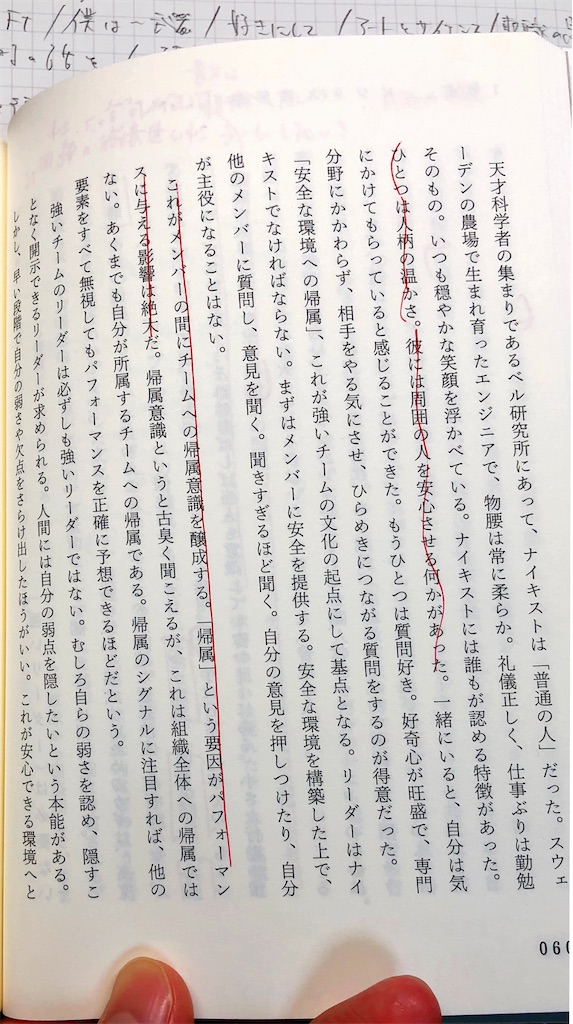 FT / 僕は〜武器 / 好きにして / アートとサイエンス /
天才科学者の集まりであるベル研究所にあって、ナイキストは「普通の人」だった。スウェ
ーデンの農場で生まれ育ったエンジニアで、物腰は常に柔らか。礼儀正しく、仕事ぶりは勤勉
そのもの。いつも穏やかな笑顔を浮かべている。ナイキストには誰もが認める特徴があった。
ひとつは人柄の温かさ。彼には周囲の人を安心させる何かがあった。一緒にいると、自分は気
にかけてもらっていると感じることができた。もうひとつは質問好き。好奇心が旺盛で、専門
分野にかかわらず、相手をやる気にさせ、ひらめきにつながる質問をするのが得意だった。
「安全な環境への帰属」、これが強いチームの文化の起点にして基点となる。リーダーはナイ
キストでなければならない。まずはメンバーに安全を提供する。安全な環境を構築した上で、
他のメンバーに質問し、意見を聞く。聞きすぎるほど聞く。自分の意見を押しつけたり、自分
が主役になることはない。
これがメンバーの間にチームへの帰属意識を醸成する。「帰属」という要因がパフォーマン
スに与える影響は絶大だ。帰属意識というと古臭く聞こえるが、これは組織全体への帰属では
ない。あくまでも自分が所属するチームへの帰属である。帰属のシグナルに注目すれば、他の
要素をすべて無視してもパフォーマンスを正確に予想できるほどだという。
強いチームのリーダーは必ずしも強いリーダーではない。むしろ自らの弱さを認め、隠すこ
となく開示できるリーダーが求められる。人間には自分の弱点を隠したいという本能がある。
しかし、早い段階で自分の弱さや欠点をさらけ出したほうがいい。これが安心できる環境へと
060